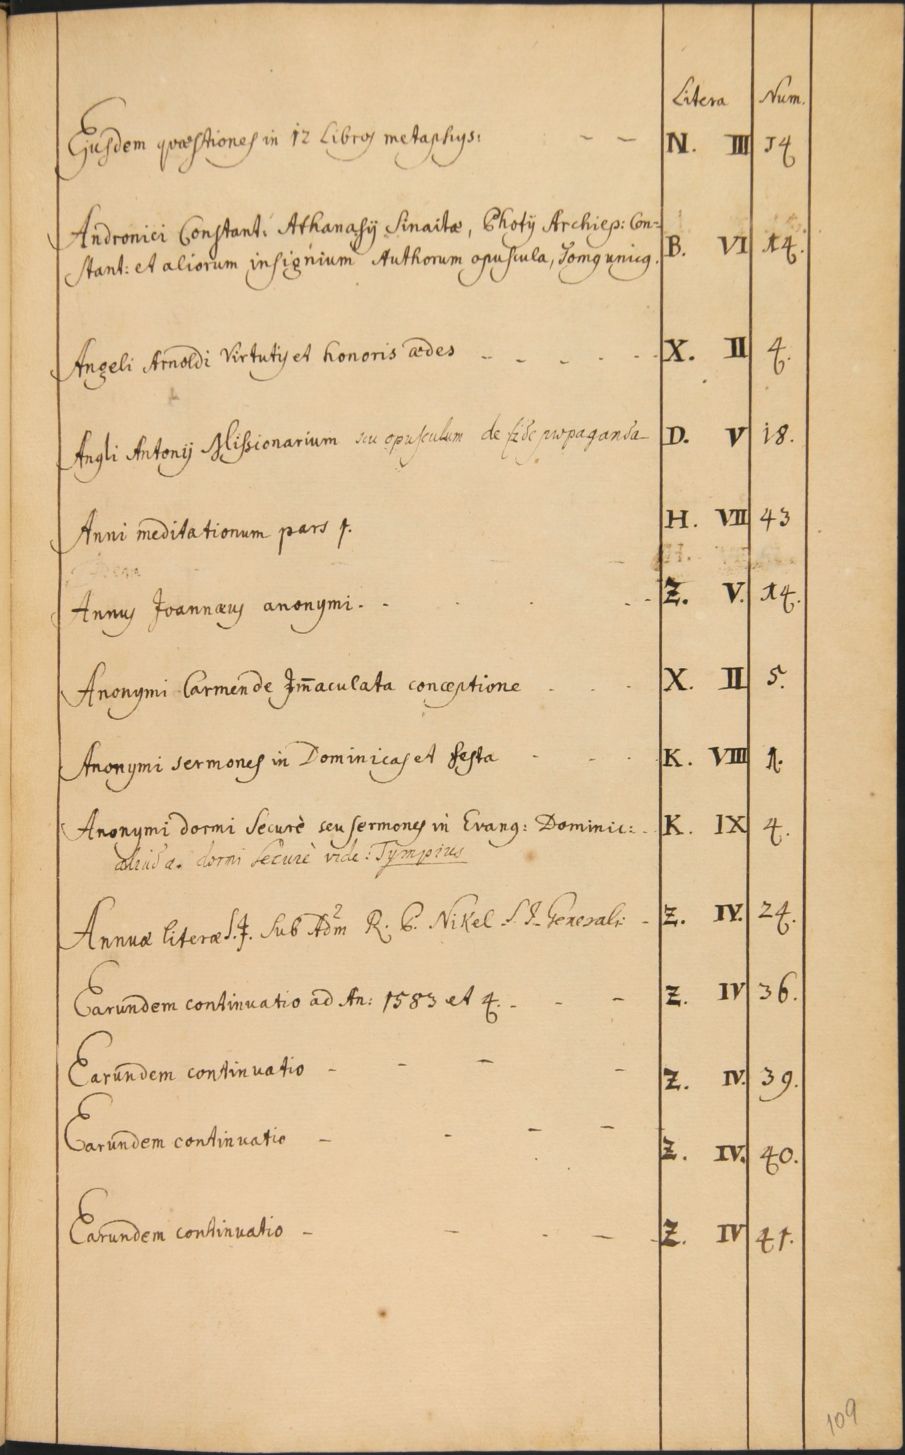 Litera Num.
Ejusdem quæstiones in 12 Libros metaphys: – – N. III 14
Andronici Constant: Athanasij Sinaitæ, Photij Archiep: Con-
stant: et aliorum insignium Authorum opuscula, Tomus unicus. B. VI 14.
Angeli Arnoldi Virtutis et honoris ædes - - - - - - X. II 4.
Angli Antonij Missionarium seu opusculum de fide propaganda D. V 18.
Anni meditationum pars 1. H. VII 43
Annus Joannæus anonymi. - - - - - Z. V. 14.
Anonymi Carmen de Im̄aculata conceptione - - - X. II 5.
Anonymi sermones in Dominicas et festa - - - K. VIII 1.
Anonymi dormi Securè seu sermones in Evang: Dominic: - K. IX 4.
dormi securè vide: Tympius
Annuæ literæ S.J. sub Adm R. P. Nikel S. J. Generali - Z. IV. 24.
Earundem continuatio ad An: 1583 et 4. - - – Z. IV 36.
Earundem continuatio - - – – Z. IV. 39.
Earundem continuatio – - – – Z. IV. 40.
Earundem continuatio – – - – - Z. IV 41.
109